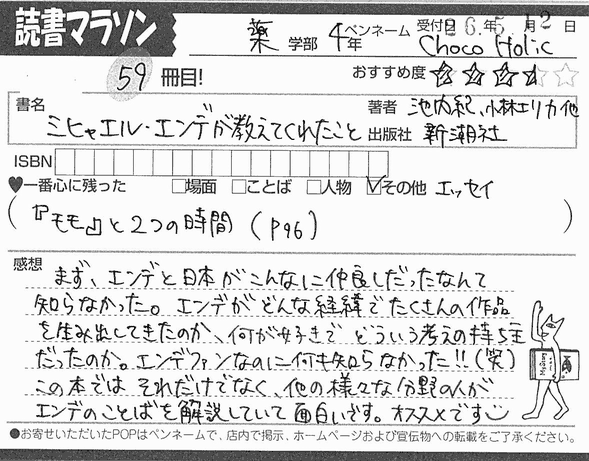 読書マラソン
薬 学部 4年 ペンネーム Choco Holic
受付日 26年5月12日
59 冊目!
おすすめ度
書名 ミヒャエル・エンデが教えてくれたこと
著者 池内紀、小林エリカ他
出版社 新潮社
ISBN
♥一番心に残った □場面 □ことば □人物 ☑その他 エッセイ
(『モモ』と2つの時間 (P96) )
感想
まず、エンデと日本がこんなに仲良しだったなんて
知らなかった。エンデがどんな経緯でたくさんの作品
を生み出してきたのか、何が好きで どういう考えの持ち主
だったのか。エンデファンなのに何も知らなかった!!(笑)
この本では それだけでなく、他の様々な分野の人が
エンデのことばを解説していて面白いです。オススメです
●お寄せいただいたPOPはペンネームで、店内で掲示、ホームページおよび宣伝物への転載をご了承ください。